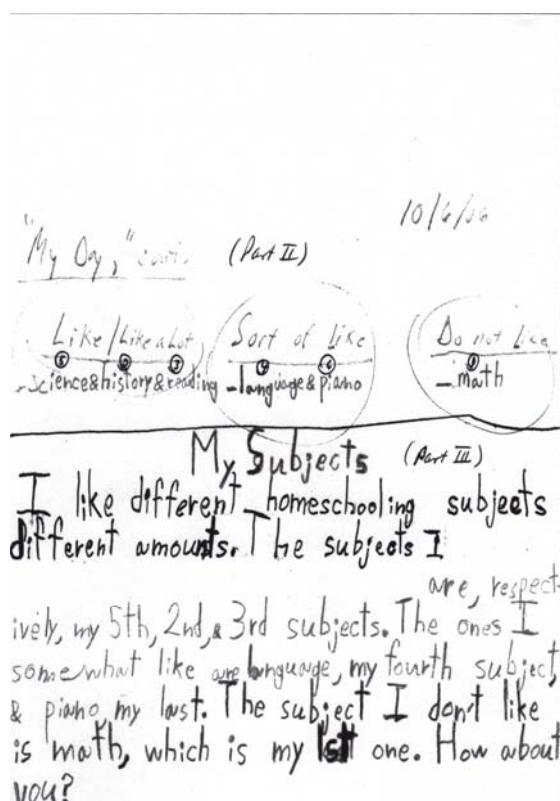 10/6/06
"My Day," cont.
(Part II)
Like/Like a Lot
Sort of Like
Do not Like
5 2 3
4 6
1
-science&history&reading
-language&piano
-math
My Subjects
(Part III)
I like different homeschooling subjects
different amounts. The subjects I
are, respect-
ively, my 5th, 2nd, & 3rd subjects. The ones I
somewhat like are language, my fourth subject,
& piano, my last. The subject I don't like
is math, which is my 1st one. How about
you?